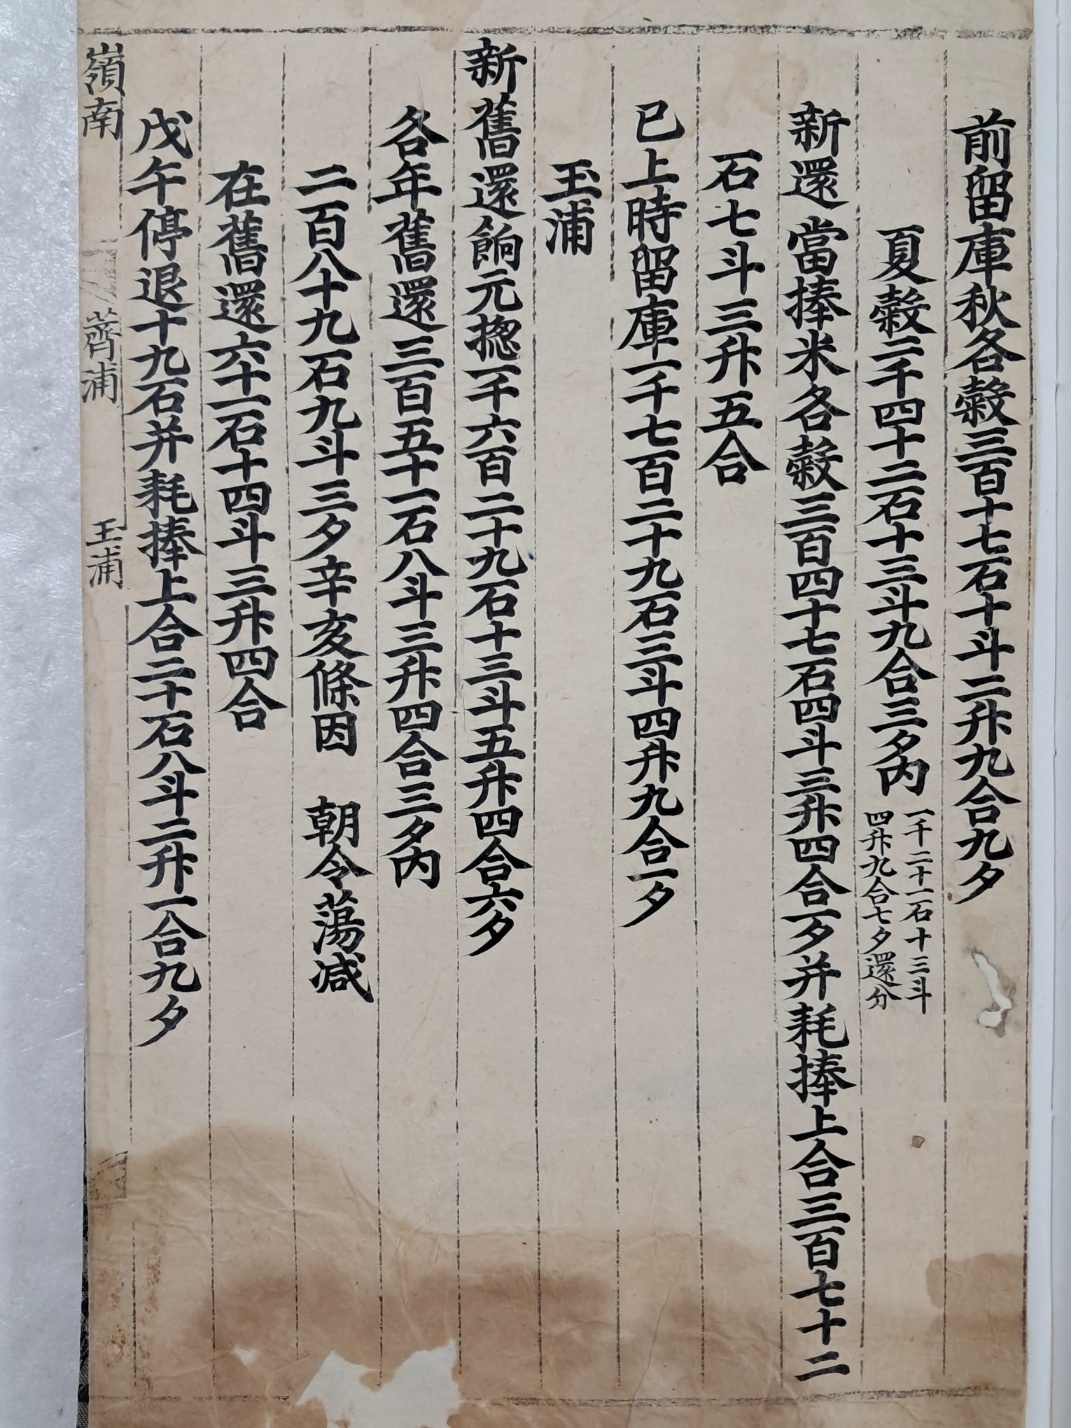 前留庫秋各穀三百十七石十斗二升九合九夕
夏穀二千四十二石十三斗九合三夕內
一千二十一石十三斗
四升九合七夕還分
新還當捧米各穀三百四十七石四斗三升四合一夕并耗捧上合三百七十二
石七斗三升五合
已上時留庫一千七百二十九石三斗四升九合一夕
玉浦
新舊還餉元摠一千六百二十九石十三斗五升四合六夕
各年舊還三百五十一石八斗三升四合三夕內
二百八十九石九斗三夕辛亥條因 朝令蕩减
在舊還六十一石十四斗三升四合
戊午停退十九石并耗捧上合二十石八斗二升一合九夕
嶺南 薺浦 玉浦